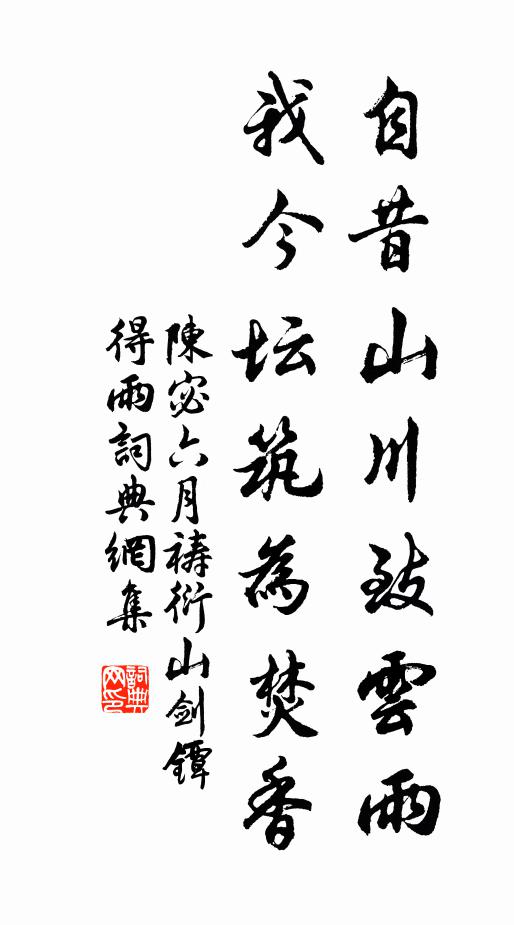 自昔山川致雲雨
我今坛筑為焚香
陳宓六月禱衍山劍鐔
得雨詞典網集
詞典網印